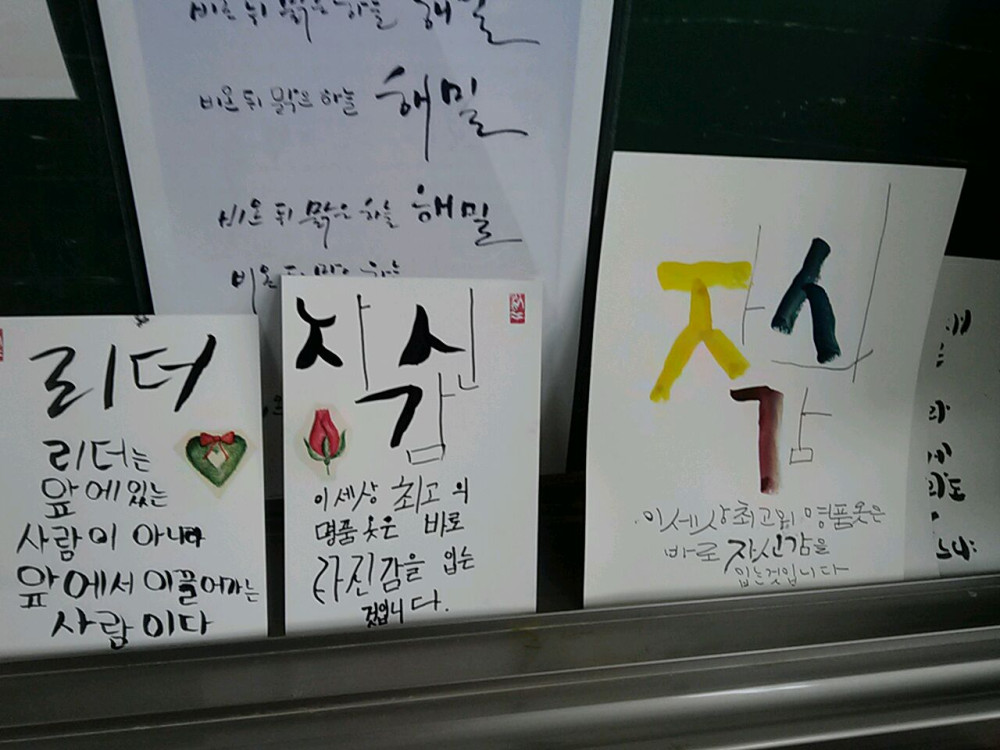 비온 뒤 맑은 하늘 해밀
비온 뒤 맑은 하늘 해밀
비온 뒤 맑은 하늘 해밀
비온 뒤 맑은 하늘
리더
리더는
앞에 있는
사람이 아니라
앞에서 이끌어가는
사람이다
자신
감
이 세상 최고의
명품 옷은 바로
자신감을 입는
것입니다.
자신
감
이 세상 최고의 명품옷은
바로 자신감을
입는것입니다